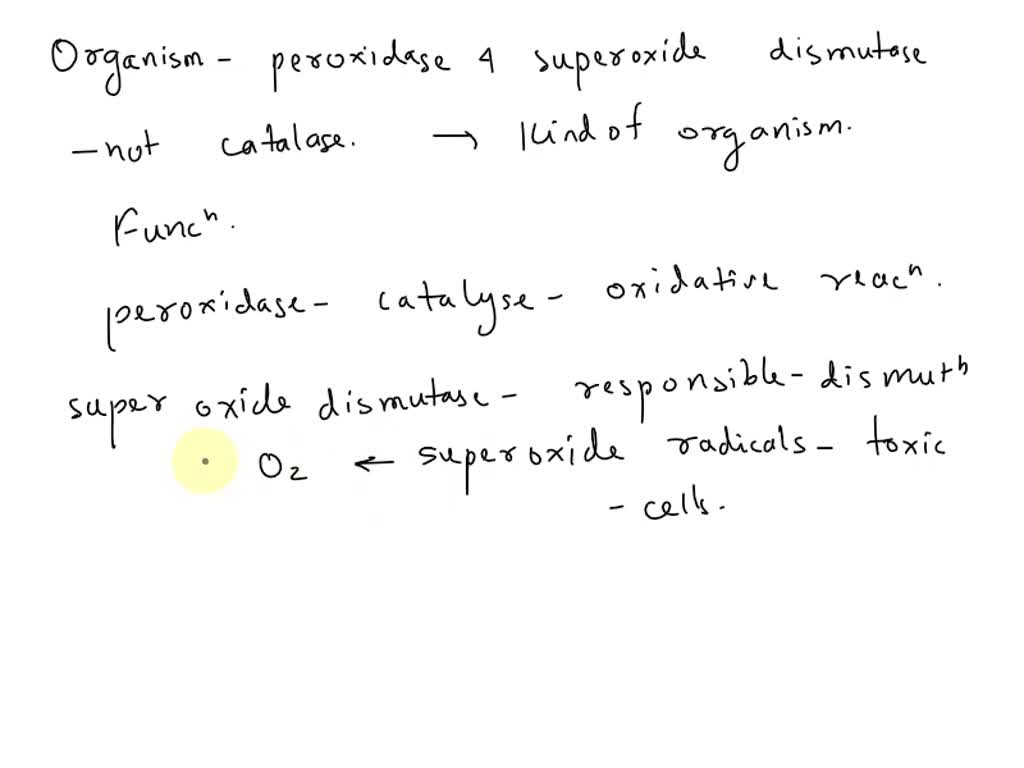 Organism - peroxidase & superoxide dismutase
- not catalase. → Kind of organism.
Funcⁿ.
peroxidase - catalyse - oxidative reacⁿ.
super oxide dismutase - responsible - dismutⁿ
O₂ ← superoxide radicals - toxic
- cells.